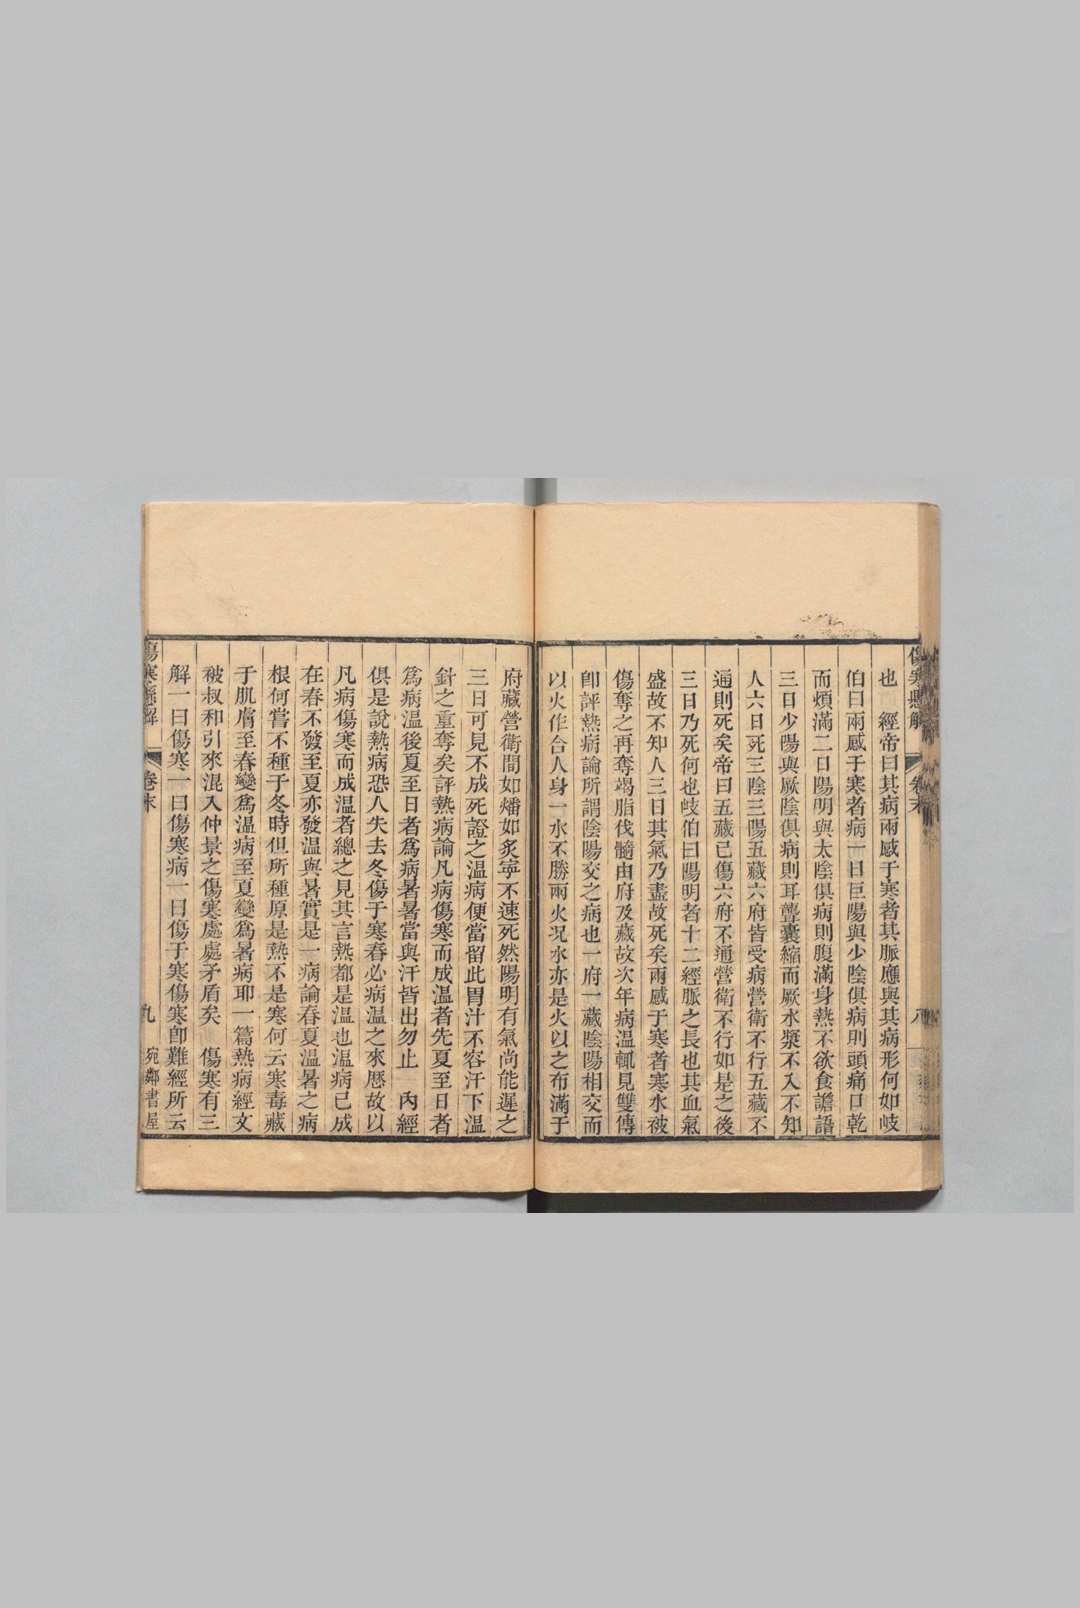 傷寒懸解 卷末 八
也　經帝曰其病兩感于寒者其脈應與其病形何如岐
伯曰兩感于寒者病一日巨陽與少陰俱病則頭痛口乾
而煩滿二日陽明與太陰俱病則腹滿身熱不欲食譫語
三日少陽與厥陰俱病則耳聾囊縮而厥水漿不入不知
人六日死三陰三陽五藏六府皆受病營衛不行五藏不
通則死矣帝曰五藏已傷六府不通營衛不行如是之後
三日乃死何也岐伯曰陽明者十二經脈之長也其血氣
盛故不知人三日其氣乃盡故死矣兩感于寒者寒水被
傷奪之再奪竭脂伐髓由府及藏故次年病溫輒見雙傳
卽評熱病論所謂陰陽交之病也一府一藏陰陽相交而
以火作合人身一水不勝兩火況水亦是火以之布滿于
府藏營衛間如燔如炙寧不速死然陽明有氣尚能遲之
三日可見不成死證之溫病便當留此胃汁不容汗下溫
針之重奪矣評熱病論凡病傷寒而成溫者先夏至日者
爲病溫後夏至日者爲病暑暑當與汗皆出勿止　內經
俱是說熱病恐人失去冬傷于寒春必病溫之來歷故以
凡病傷寒而成溫者總之見其言熱都是溫也溫病已成
在春不發至夏亦發溫與暑實是一病論春夏溫暑之病
根何嘗不種于冬時但所種原是熱不是寒何云寒毒藏
于肌膚至春變爲溫病至夏變爲暑病耶一篇熱病經文
被叔和引來混入仲景之傷寒處處矛盾矣　傷寒有三
解一曰傷寒一曰傷寒病一曰傷于寒傷寒卽難經所云
傷寒懸解 卷末 九 宛鄰書屋